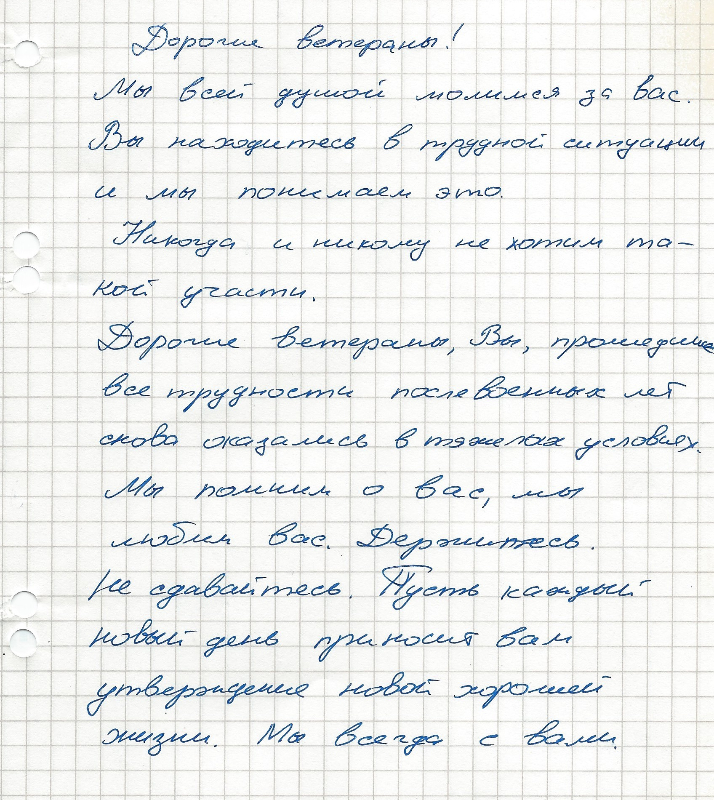 Дорогие ветераны!
Мы всей душой молимся за вас.
Вы находитесь в трудной ситуации
и мы понимаем это.
Никогда и никому не хотим та-
кой участи.
Дорогие ветераны, Вы, прошедшие
все трудности послевоенных лет
снова оказались в тяжелых условиях.
Мы помним о вас, мы
любим вас. Держитесь.
Не сдавайтесь. Пусть каждый
новый день приносит вам
утверждение новой хорошей
жизни. Мы всегда с вами.